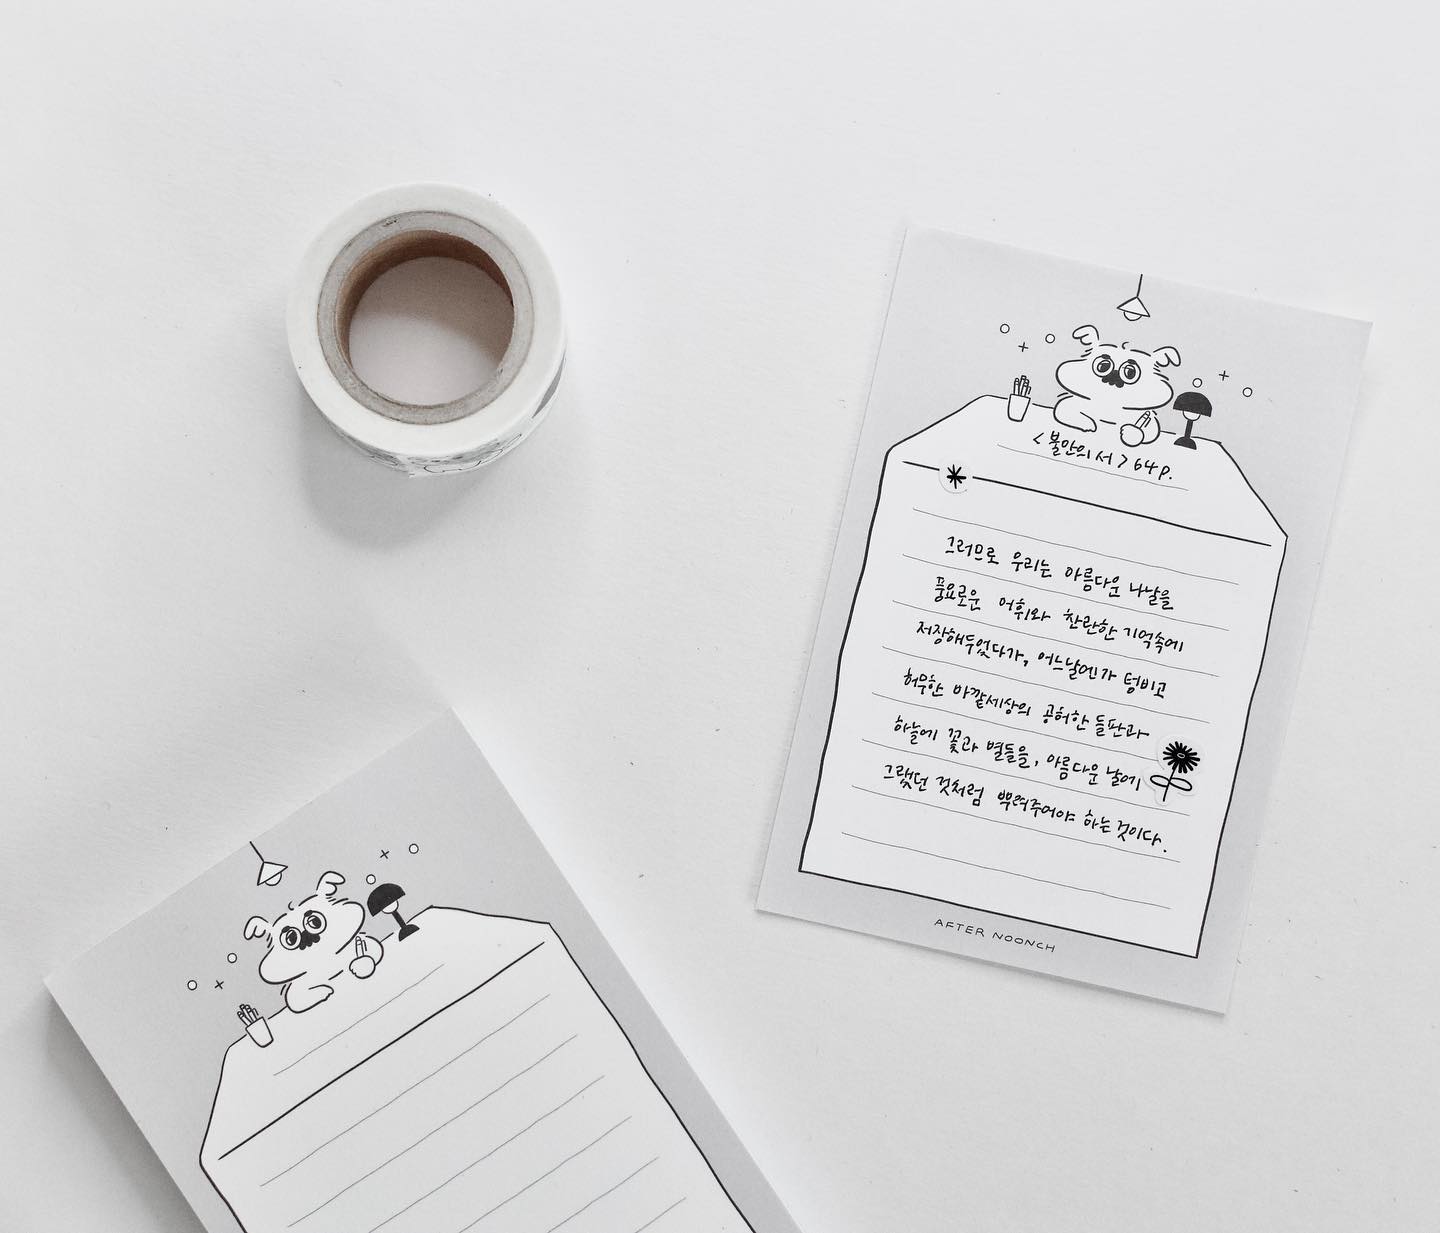 <불안의 서> 64p.
그러므로 우리는 아름다운 나날을
풍요로운 어휘와 찬란한 기억속에
저장해두었다가, 어느날엔가 텅비고
허무한 바깥세상의 공허한 들판과
하늘에 꽃과 별들을, 아름다운 날에
그랬던 것처럼 뿌려주어야 하는것이다.
AFTER NOONCH